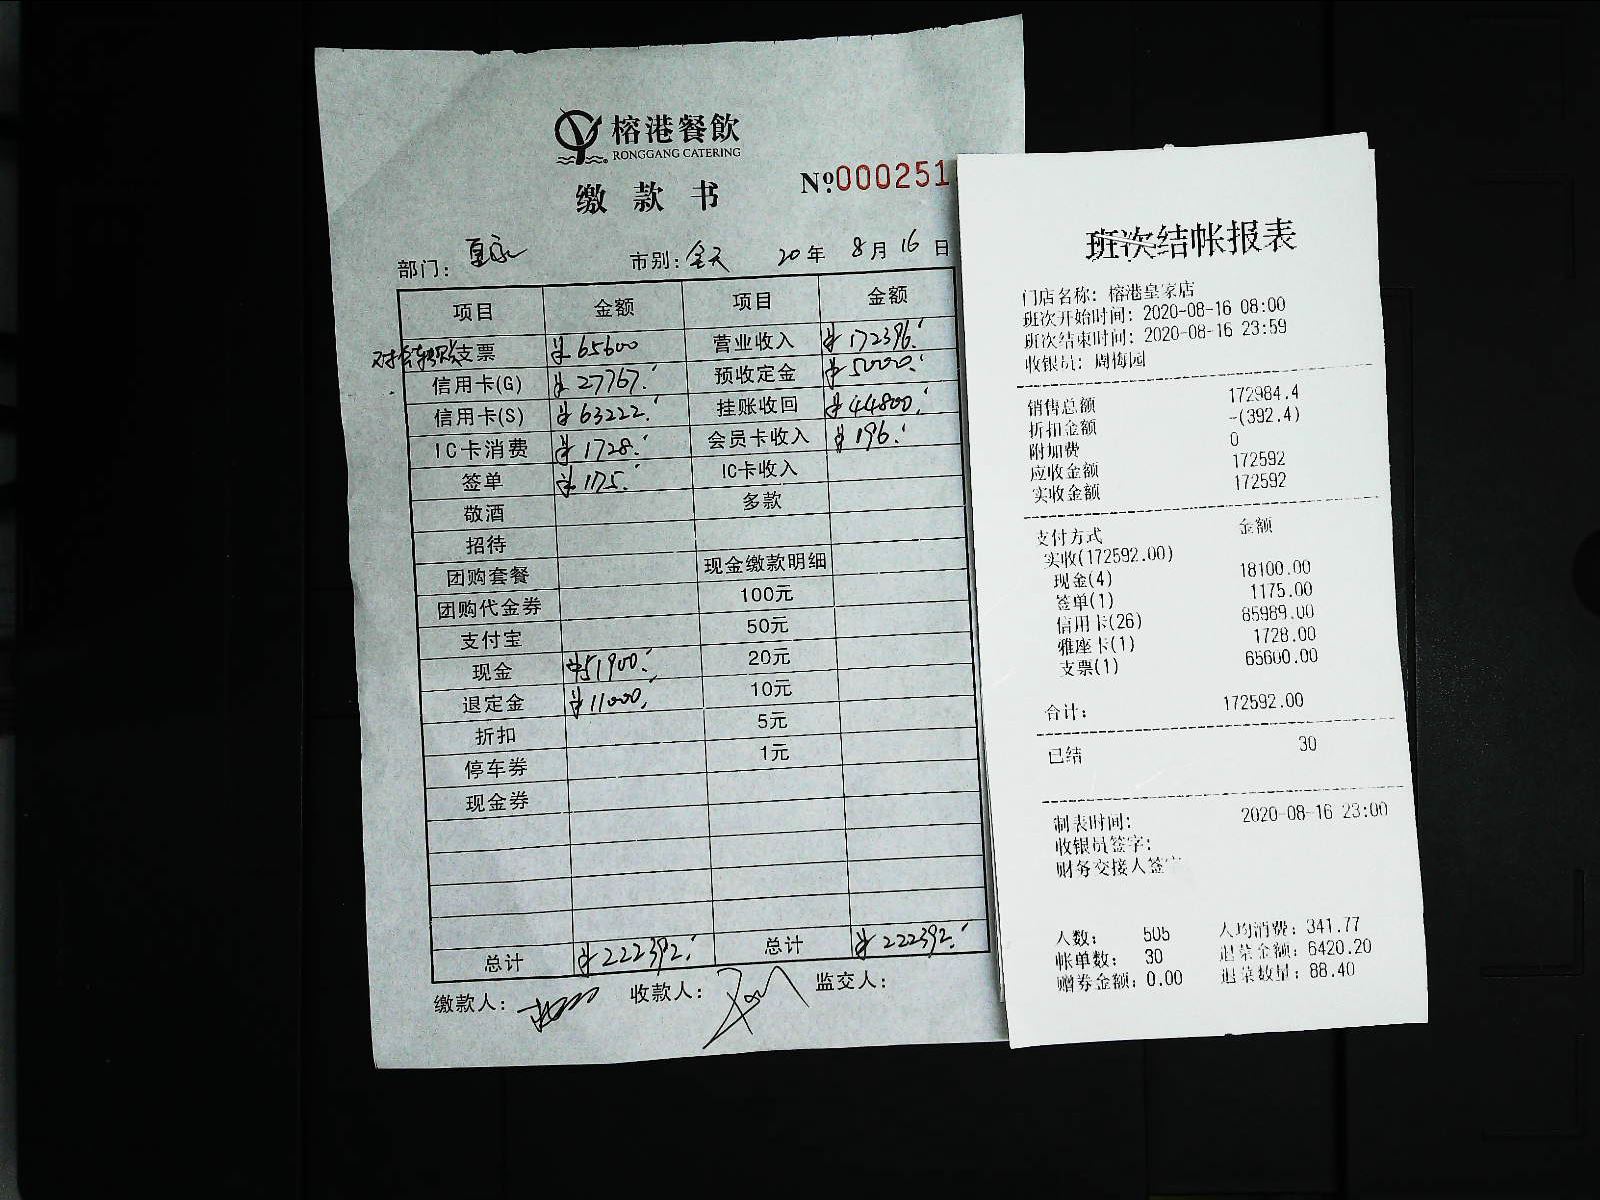 榕港餐飲
RONGGANG CATERING
缴款书
№:000251
部门: 皇家 市别: 全天 20年 8月 16日
项目 金额 项目 金额
对公转账 支票 ¥65600 营业收入 ¥172396.
信用卡(G) ¥27767. 预收定金 ¥5000.
信用卡(S) ¥63222. 挂账收回 ¥44800.
IC卡消费 ¥1728. 会员卡收入 ¥196.
签单 ¥1175. IC卡收入
敬酒 多款
招待
团购套餐 现金缴款明细
团购代金券 100元
支付宝 50元
现金 ¥51900. 20元
退定金 ¥11000. 10元
折扣 5元
停车券 1元
现金券
总计 ¥222392. 总计 ¥222392.
缴款人: 收款人: 监交人:
班次结帐报表
门店名称: 榕港皇家店
班次开始时间: 2020-08-16 08:00
班次结束时间: 2020-08-16 23:59
收银员: 周梅园
销售总额 172984.4
折扣金额 -(392.4)
附加费 0
应收金额 172592
实收金额 172592
支付方式 金额
实收(172592.00)
现金(4) 18100.00
签单(1) 1175.00
信用卡(26) 85989.00
雅座卡(1) 1728.00
支票(1) 65600.00
合计: 172592.00
已结 30
制表时间: 2020-08-16 23:00
收银员签字:
财务交接人签字
人数: 505 人均消费: 341.77
帐单数: 30 退菜金额: 6420.20
赠券金额: 0.00 退菜数量: 88.40